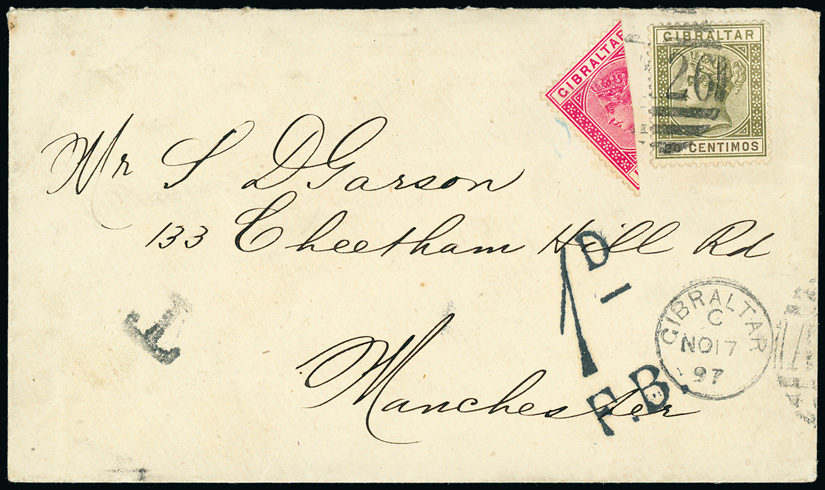 GIBRALTAR
GIBRALTAR
26
20 CENTIMOS
Mr S D Garson
133 Cheetham Hill Rd
Manchester
T
1D
F.B.
GIBRALTAR
C
NO 17
97